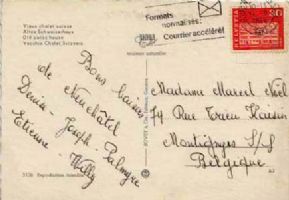 Vieux chalet suisse
Altes Schweizerhaus
Old swiss house
Vecchio Chalet Svizzero
Formats
normalisés:
Courrier accéléré
HELVETIA
30
Bons baisers
de Neuchâtel
Denise - Joseph - Palmyre
Etienne - Willy
Madame Marcel Noël
74 Rue
Montignies S/S
Belgique
Reproduction interdite